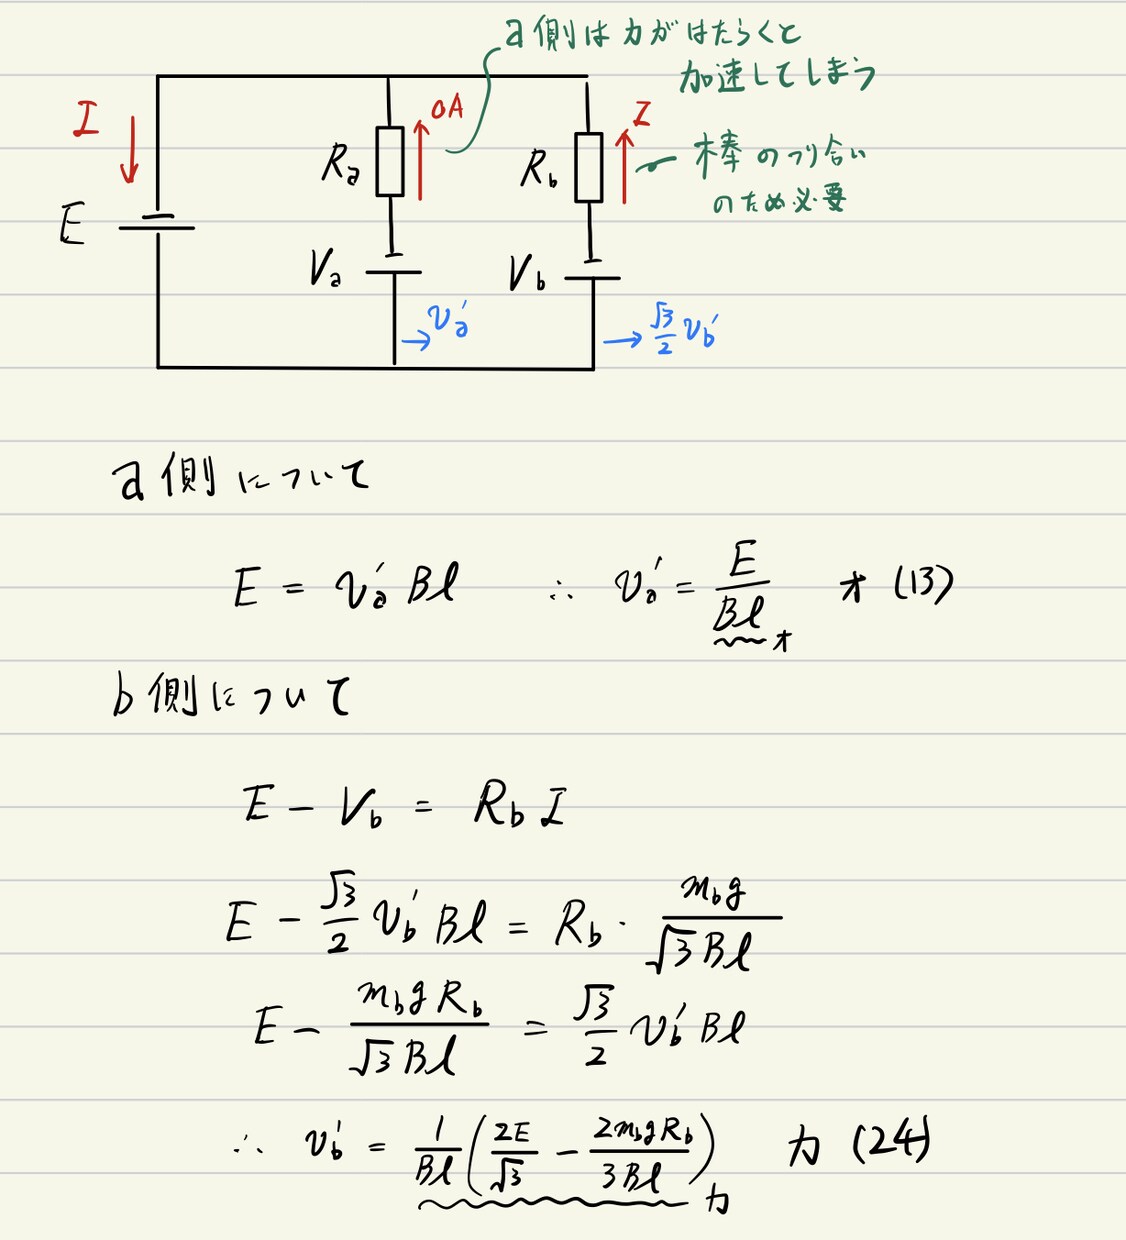 a側は力がはたらくと
加速してしまう
I
0A
I
Ra
Rb
棒のつり合い
のため必要
E
Va
Vb
→va'
→√3/2 vb'
a側について
E = va' Bl ∴ va' = E/Bl オ オ (13)
b側について
E - Vb = Rb I
E - √3/2 vb' Bl = Rb · mbg/√3Bl
E - mbgRb/√3Bl = √3/2 vb' Bl
∴ vb' = 1/Bl (2E/√3 - 2mbgRb/3Bl) カ カ (24)